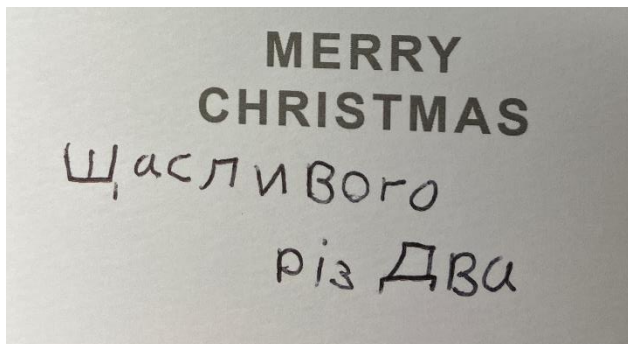 MERRY
CHRISTMAS
Щасливого
різ Два